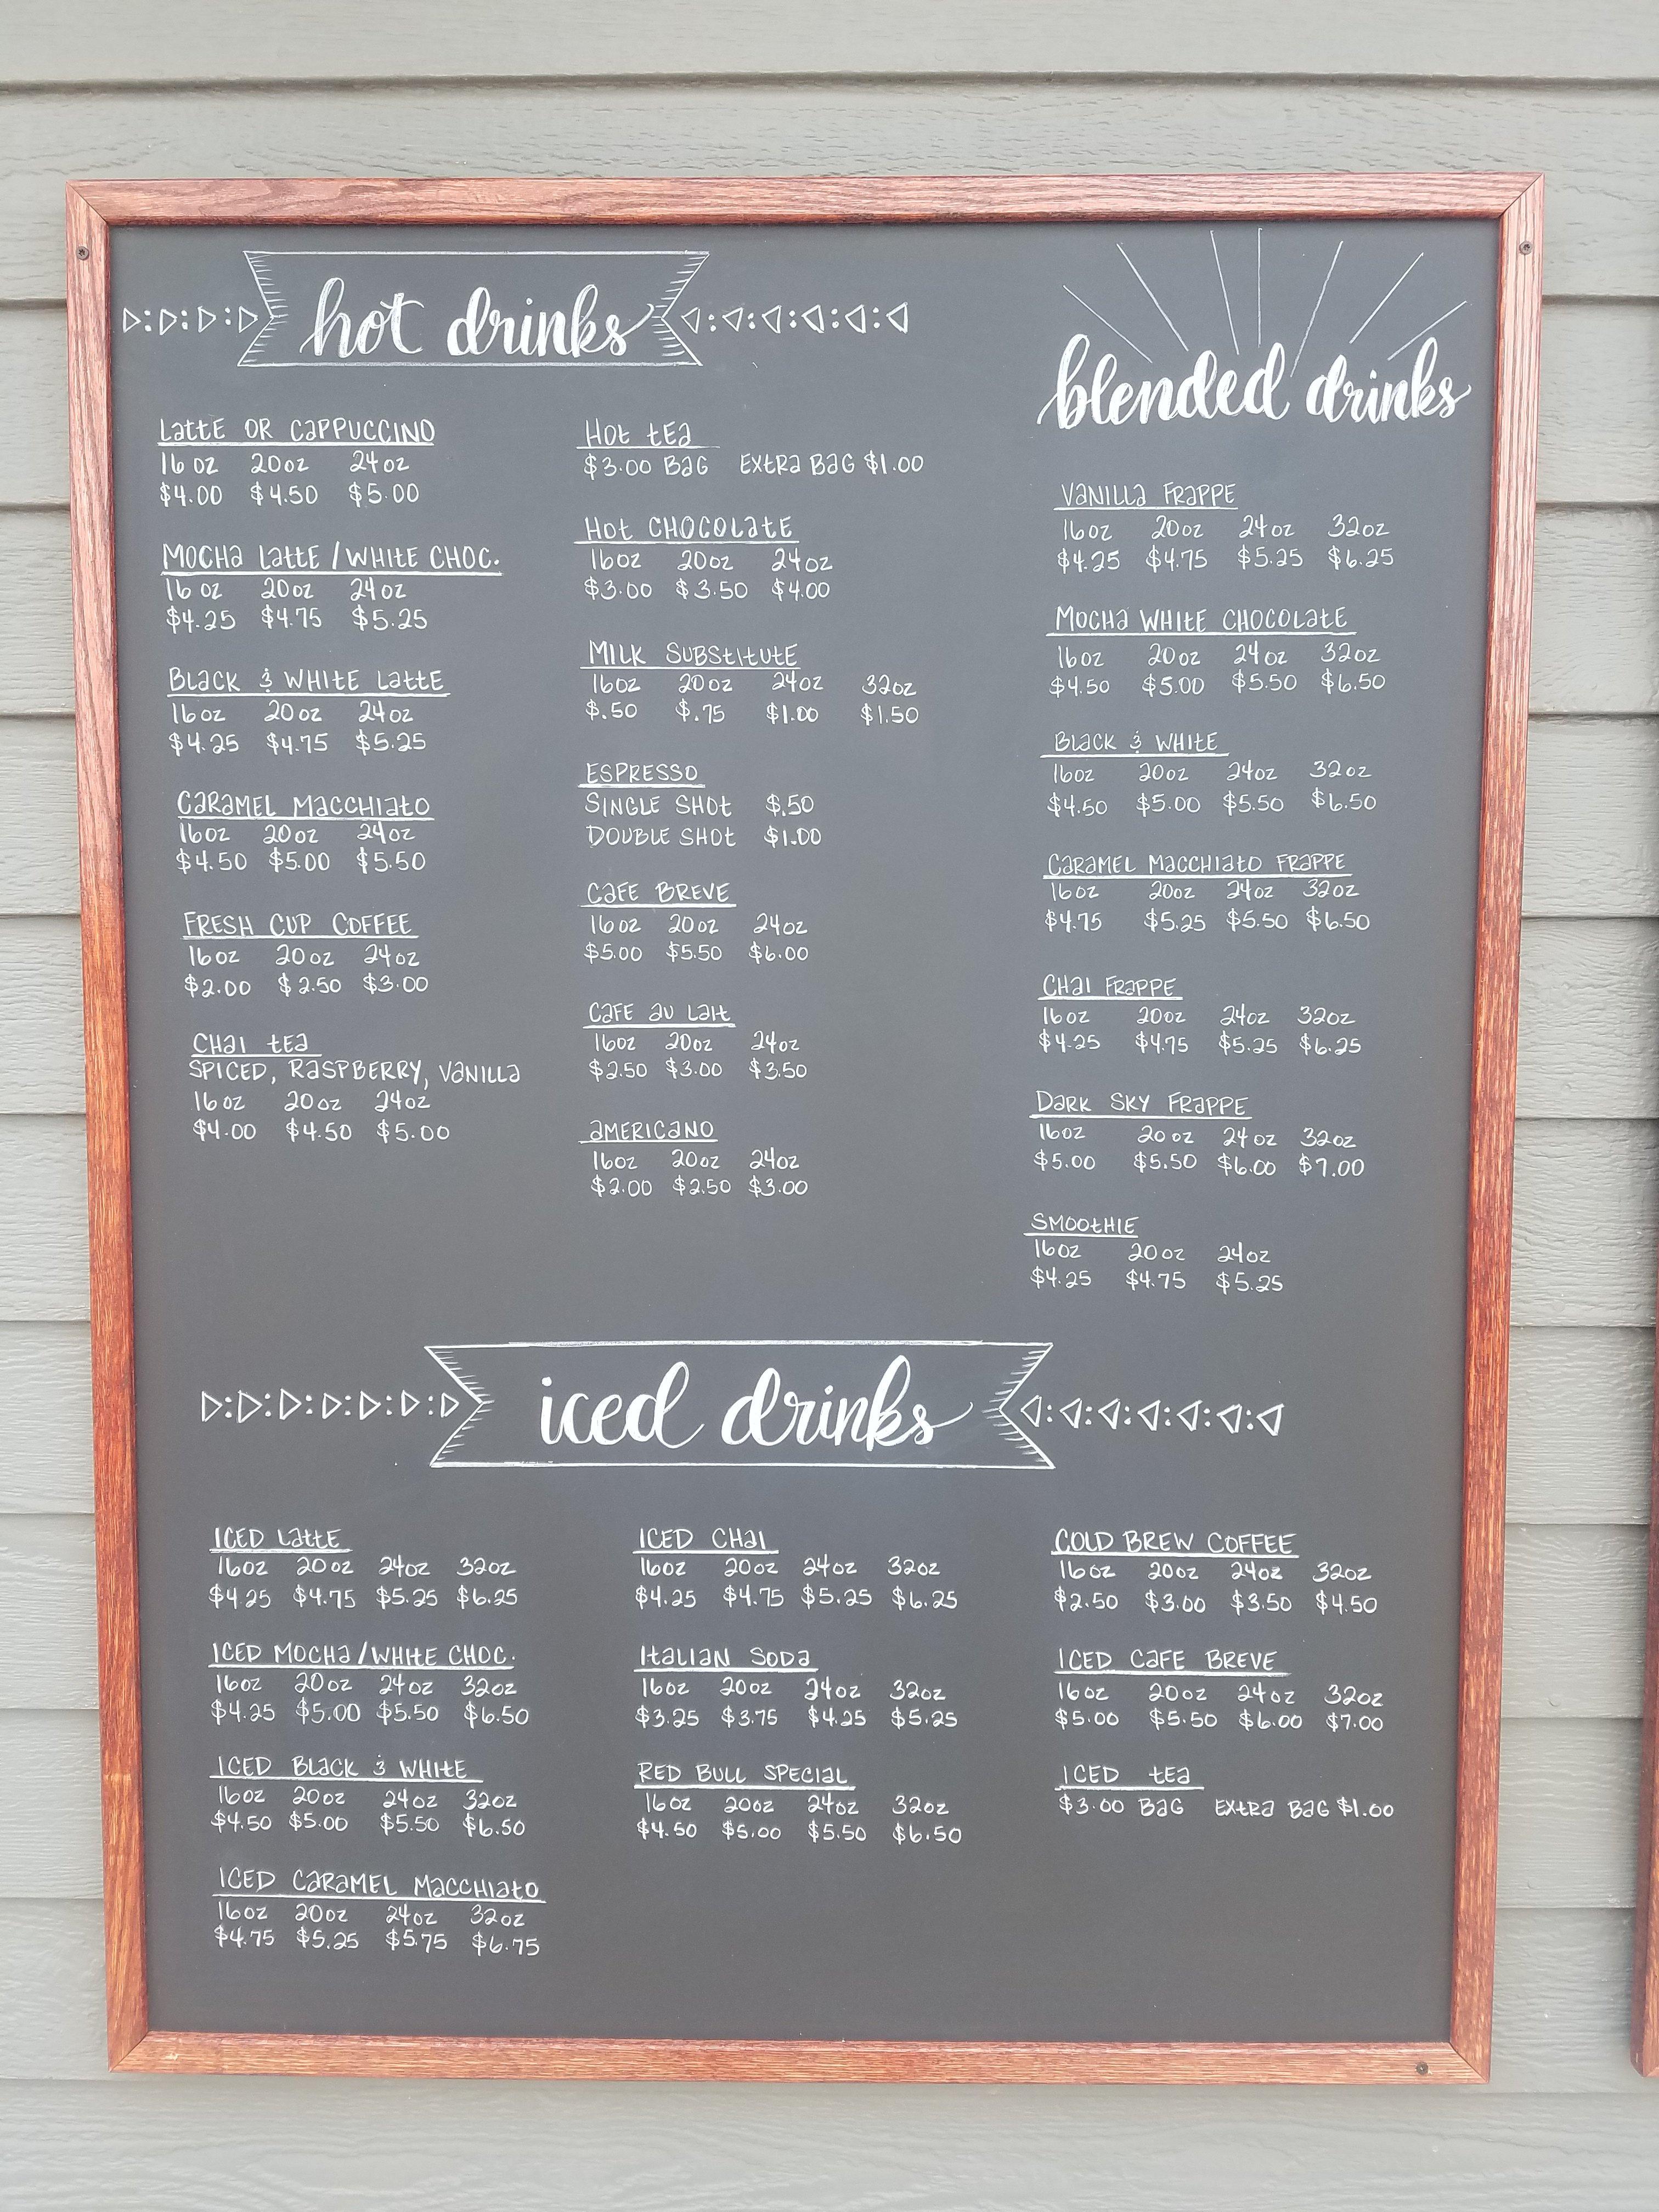 hot drinks
LattE OR CaPPUCCINO
16 oz 20oz 24oz
$4.00 $4.50 $5.00
MOCHa LattE / WHITE CHOC.
16 oz 20oz 24oz
$4.25 $4.75 $5.25
BLaCK & WHITE LattE
16oz 20oz 24oz
$4.25 $4.75 $5.25
CaRaMEL MaCCHIatO
16oz 20oz 24oz
$4.50 $5.00 $5.50
FRESH CUP COFFEE
16oz 20oz 24oz
$2.00 $2.50 $3.00
CHaI tEa
SPICED, RaSPBERRY, VaNILLa
16oz 20oz 24oz
$4.00 $4.50 $5.00
HOt tEa
$3.00 BaG EXtRa BaG $1.00
HOt CHOCOLatE
16oz 20oz 24oz
$3.00 $3.50 $4.00
MILK SUBStItUtE
16oz 20oz 24oz 32oz
$.50 $.75 $1.00 $1.50
ESPRESSO
SINGLE SHOt $.50
DOUBLE SHOt $1.00
CaFE BREVE
16oz 20oz 24oz
$5.00 $5.50 $6.00
CaFE aU LaIt
16oz 20oz 24oz
$2.50 $3.00 $3.50
aMERICaNO
16oz 20oz 24oz
$2.00 $2.50 $3.00
blended drinks
VaNILLa FRaPPE
16oz 20oz 24oz 32oz
$4.25 $4.75 $5.25 $6.25
MOCHa WHITE CHOCOLatE
16oz 20oz 24oz 32oz
$4.50 $5.00 $5.50 $6.50
BLaCK & WHITE
16oz 20oz 24oz 32oz
$4.50 $5.00 $5.50 $6.50
CaRaMEL MaCCHIatO FRaPPE
16oz 20oz 24oz 32oz
$4.75 $5.25 $5.50 $6.50
CHaI FRaPPE
16oz 20oz 24oz 32oz
$4.25 $4.75 $5.25 $6.25
DaRK SKY FRaPPE
16oz 20oz 24oz 32oz
$5.00 $5.50 $6.00 $7.00
SMOOtHIE
16oz 20oz 24oz
$4.25 $4.75 $5.25
iced drinks
ICED LattE
16oz 20oz 24oz 32oz
$4.25 $4.75 $5.25 $6.25
ICED MOCHa/WHItE CHOC.
16oz 20oz 24oz 32oz
$4.25 $5.00 $5.50 $6.50
ICED BLaCK & WHITE
16oz 20oz 24oz 32oz
$4.50 $5.00 $5.50 $6.50
ICED CaRaMEL MaCCHIatO
16oz 20oz 24oz 32oz
$4.75 $5.25 $5.75 $6.75
ICED CHaI
16oz 20oz 24oz 32oz
$4.25 $4.75 $5.25 $6.25
ItaLIaN SODa
16oz 20oz 24oz 32oz
$3.25 $3.75 $4.25 $5.25
RED BULL SPECIaL
16oz 20oz 24oz 32oz
$4.50 $5.00 $5.50 $6.50
COLD BREW COFFEE
16oz 20oz 24oz 32oz
$2.50 $3.00 $3.50 $4.50
ICED CaFE BREVE
16oz 20oz 24oz 32oz
$5.00 $5.50 $6.00 $7.00
ICED tEa
$3.00 BaG EXtRa BaG $1.00